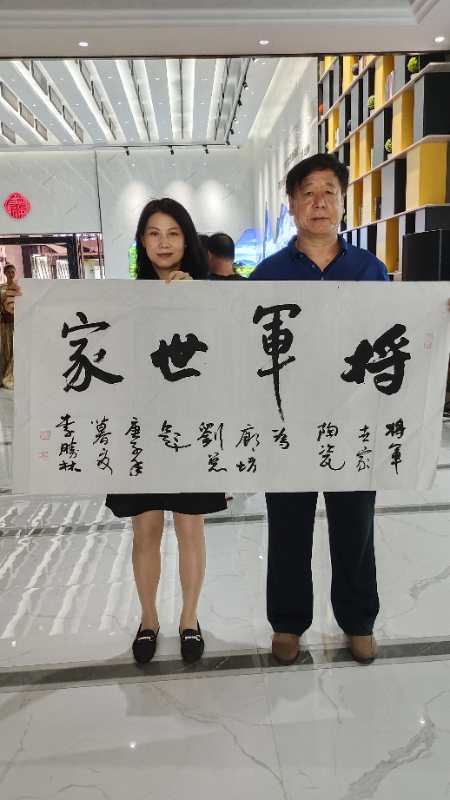 将軍世家
将軍
世家
陶瓷
為
廊坊
劉总
題
庚子年
暮夏
李勝林